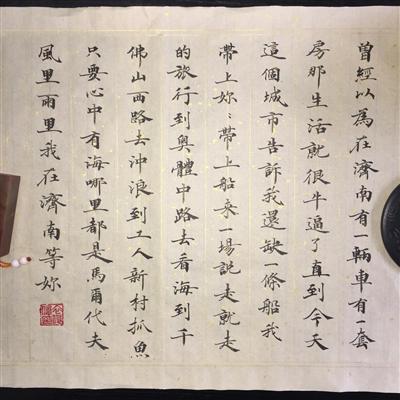 曾經以為在濟南有一輛車有一套
房那生活就很牛逼了直到今天
這個城市告訴我還缺一條船我
帶上妳〻帶上船來一場說走就走
的旅行到奧體中路去看海到千
佛山西路去沖浪到工人新村抓魚
只要心中有海哪里都是馬爾代夫
風里雨里我在濟南等妳